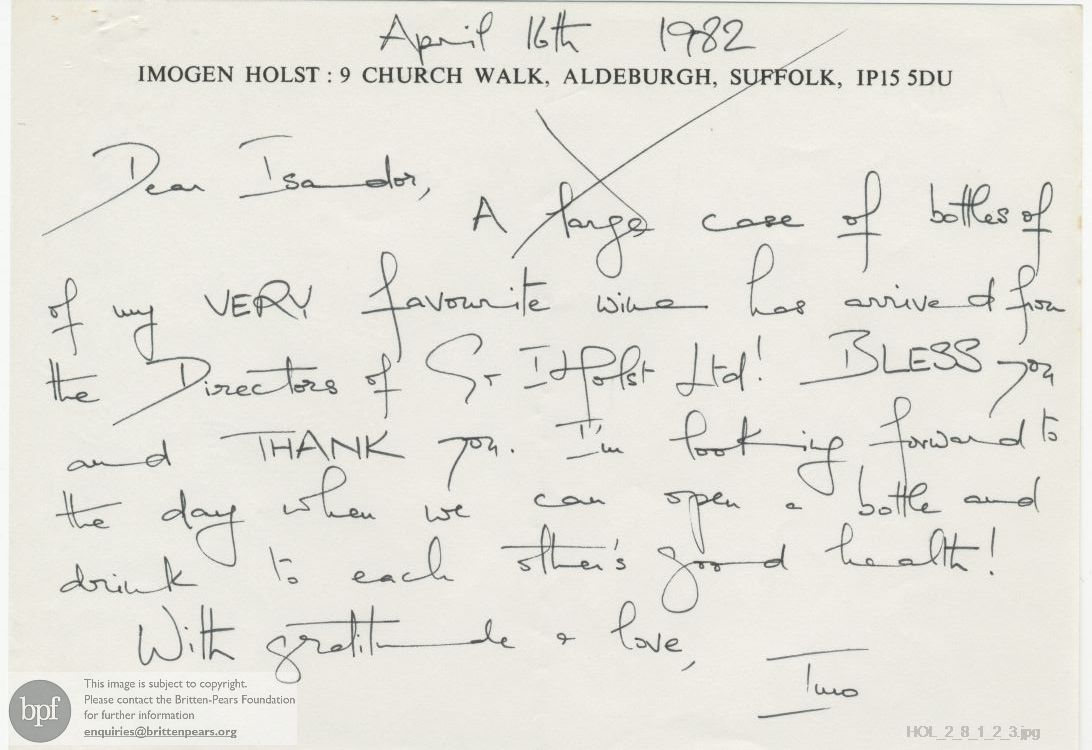 April 16th 1982
IMOGEN HOLST : 9 CHURCH WALK, ALDEBURGH, SUFFOLK, IP15 5DU
Dear Isador,
A large case of bottles of
of my VERY favourite wine has arrived from
the Directors of G & I Holst Ltd! BLESS you
and THANK you. I'm looking forward to
the day when we can open a bottle and
drink to each other's good health!
With gratitude & love,
Imo
bpf
This image is subject to copyright.
Please contact the Britten-Pears Foundation
for further information
enquiries@brittenpears.org
HOL_2_8_1_2_3.jpg